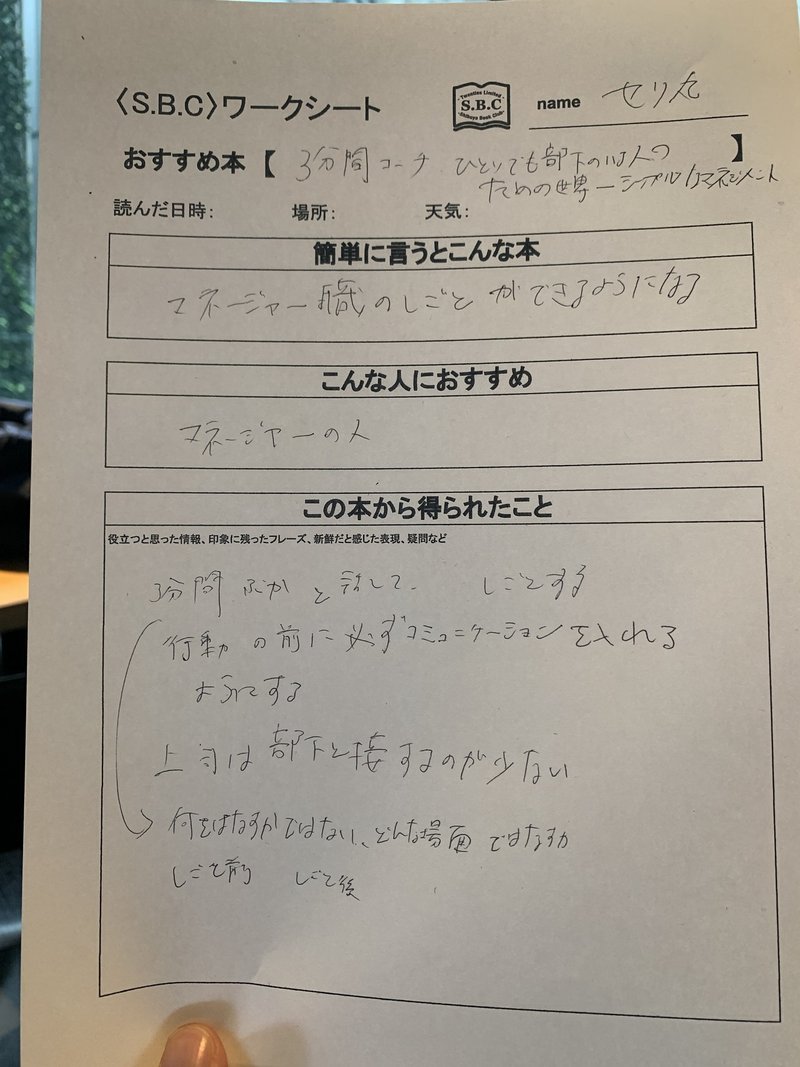 〈S.B.C〉ワークシート
Twenties Limited
S.B.C
Shibuya Book Club
name セリ丸
おすすめ本【3分間コーチ ひとりでも部下のいる人の
ための世界一シンプルなマネジメント】
読んだ日時: 場所: 天気:
簡単に言うとこんな本
マネージャー職のしごとができるようになる
こんな人におすすめ
マネージャーの人
この本から得られたこと
役立つと思った情報、印象に残ったフレーズ、新鮮だと感じた表現、疑問など
3分間 ぶかと話して、 しごとする
行動の前に必ずコミュニケーションを入れる
ようにする
上司は部下と接するのが少ない
何をはなすかではない、どんな場面ではなすか
しごと前 しごと後